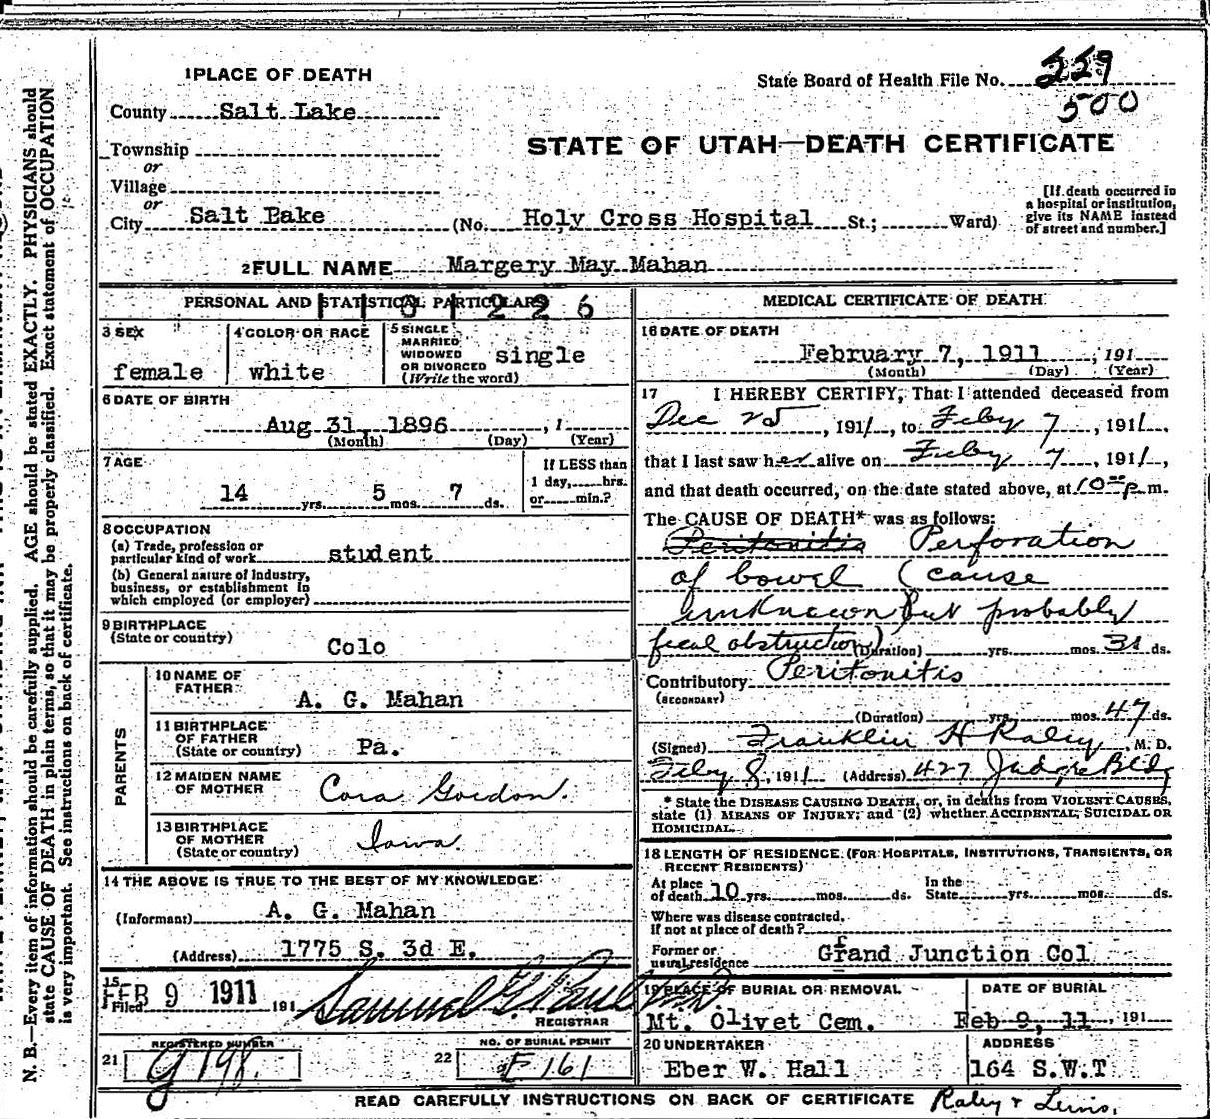 1 PLACE OF DEATH
State Board of Health File No. 229
500
County Salt Lake
STATE OF UTAH—DEATH CERTIFICATE
Township
or
Village
or
City Salt Bake (No. Holy Cross Hospital St.; Ward)
[If death occurred in
a hospital or institution,
give its NAME instead
of street and number.]
2 FULL NAME Margery May Mahan
PERSONAL AND STATISTICAL PARTICULARS
1101226
3 SEX
female
4 COLOR OR RACE
white
5 SINGLE
MARRIED
WIDOWED
OR DIVORCED
(Write the word)
single
6 DATE OF BIRTH
Aug 31, 1896, 1
(Month) (Day) (Year)
7 AGE
14 yrs. 5 mos. 7 ds.
If LESS than
1 day, hrs.
or min.?
8 OCCUPATION
(a) Trade, profession or
particular kind of work student
(b) General nature of industry,
business, or establishment in
which employed (or employer)
9 BIRTHPLACE
(State or country)
Colo
PARENTS
10 NAME OF
FATHER
A. G. Mahan
11 BIRTHPLACE
OF FATHER
(State or country)
Pa.
12 MAIDEN NAME
OF MOTHER
Cora Gordon.
13 BIRTHPLACE
OF MOTHER
(State or country)
Iowa
14 THE ABOVE IS TRUE TO THE BEST OF MY KNOWLEDGE
(Informant) A. G. Mahan
(Address) 1775 S. 3d E.
15
Filed FEB 9 1911 191
Samuel G. Paul
REGISTRAR
21 REGISTERED NUMBER
G 198.
22 NO. OF BURIAL PERMIT
E 161
MEDICAL CERTIFICATE OF DEATH
16 DATE OF DEATH
February 7, 1911, 191
(Month) (Day) (Year)
17 I HEREBY CERTIFY, That I attended deceased from
Dec 25, 1911, to Feby 7, 1911,
that I last saw her alive on Feby 7, 1911,
and that death occurred, on the date stated above, at 10 p. m.
The CAUSE OF DEATH* was as follows:
Peritonitis Perforation
of bowel (cause
unknown but probably
fecal obstruction) (Duration) yrs. mos. 31 ds.
Contributory Peritonitis
(SECONDARY)
(Duration) yrs. mos. 47 ds.
(Signed) Franklin H Raley, M. D.
Feby 8, 1911 (Address) 427 Judge Bldg
* State the DISEASE CAUSING DEATH, or, in deaths from VIOLENT CAUSES,
state (1) MEANS OF INJURY; and (2) whether ACCIDENTAL, SUICIDAL OR
HOMICIDAL.
18 LENGTH OF RESIDENCE (FOR HOSPITALS, INSTITUTIONS, TRANSIENTS, OR
RECENT RESIDENTS)
At place
of death 10 yrs. mos. ds.
In the
State yrs. mos. ds.
Where was disease contracted,
if not at place of death?
Former or
usual residence Grand Junction Col
19 PLACE OF BURIAL OR REMOVAL
Mt. Olivet Cem.
DATE OF BURIAL
Feb 9, 11, 191
20 UNDERTAKER
Eber W. Hall
ADDRESS
164 S.W.T
READ CAREFULLY INSTRUCTIONS ON BACK OF CERTIFICATE
Raley &
N. B.—Every item of information should be carefully supplied. AGE should be stated EXACTLY. PHYSICIANS should
state CAUSE OF DEATH in plain terms, so that it may be properly classified. Exact statement of OCCUPATION
is very important. See instructions on back of certificate.